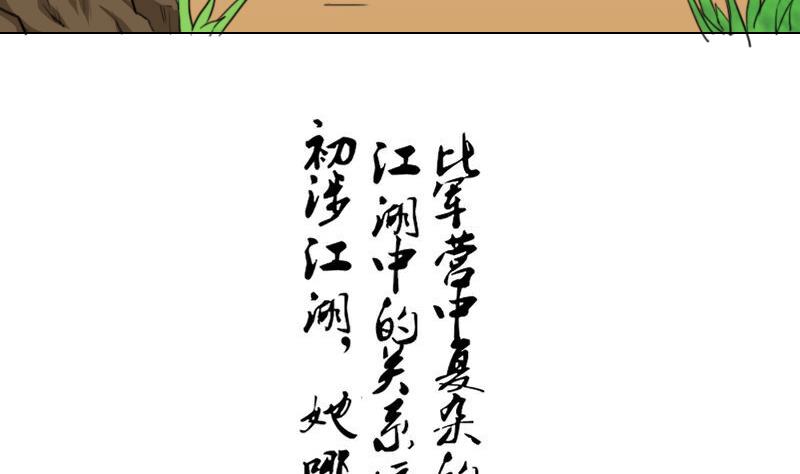 初涉江湖，她哪
江湖中的关系
比军营中复杂的